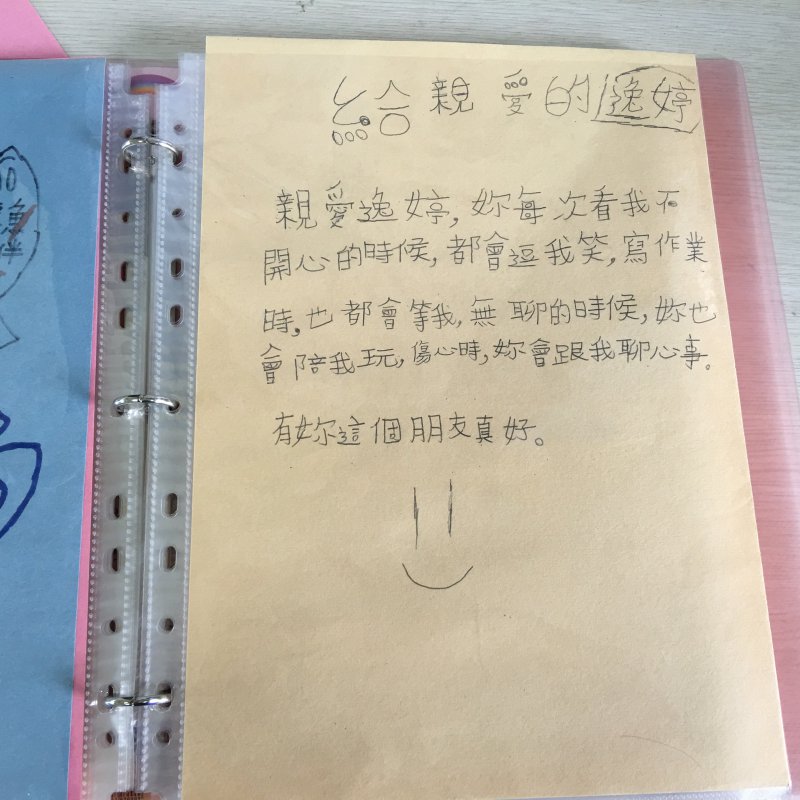 給親愛的逸婷
親愛逸婷,妳每次看我不
開心的時候,都會逗我笑,寫作業
時,也都會等我,無聊的時候,妳也
會陪我玩,傷心時,妳會跟我聊心事。
有妳這個朋友真好。